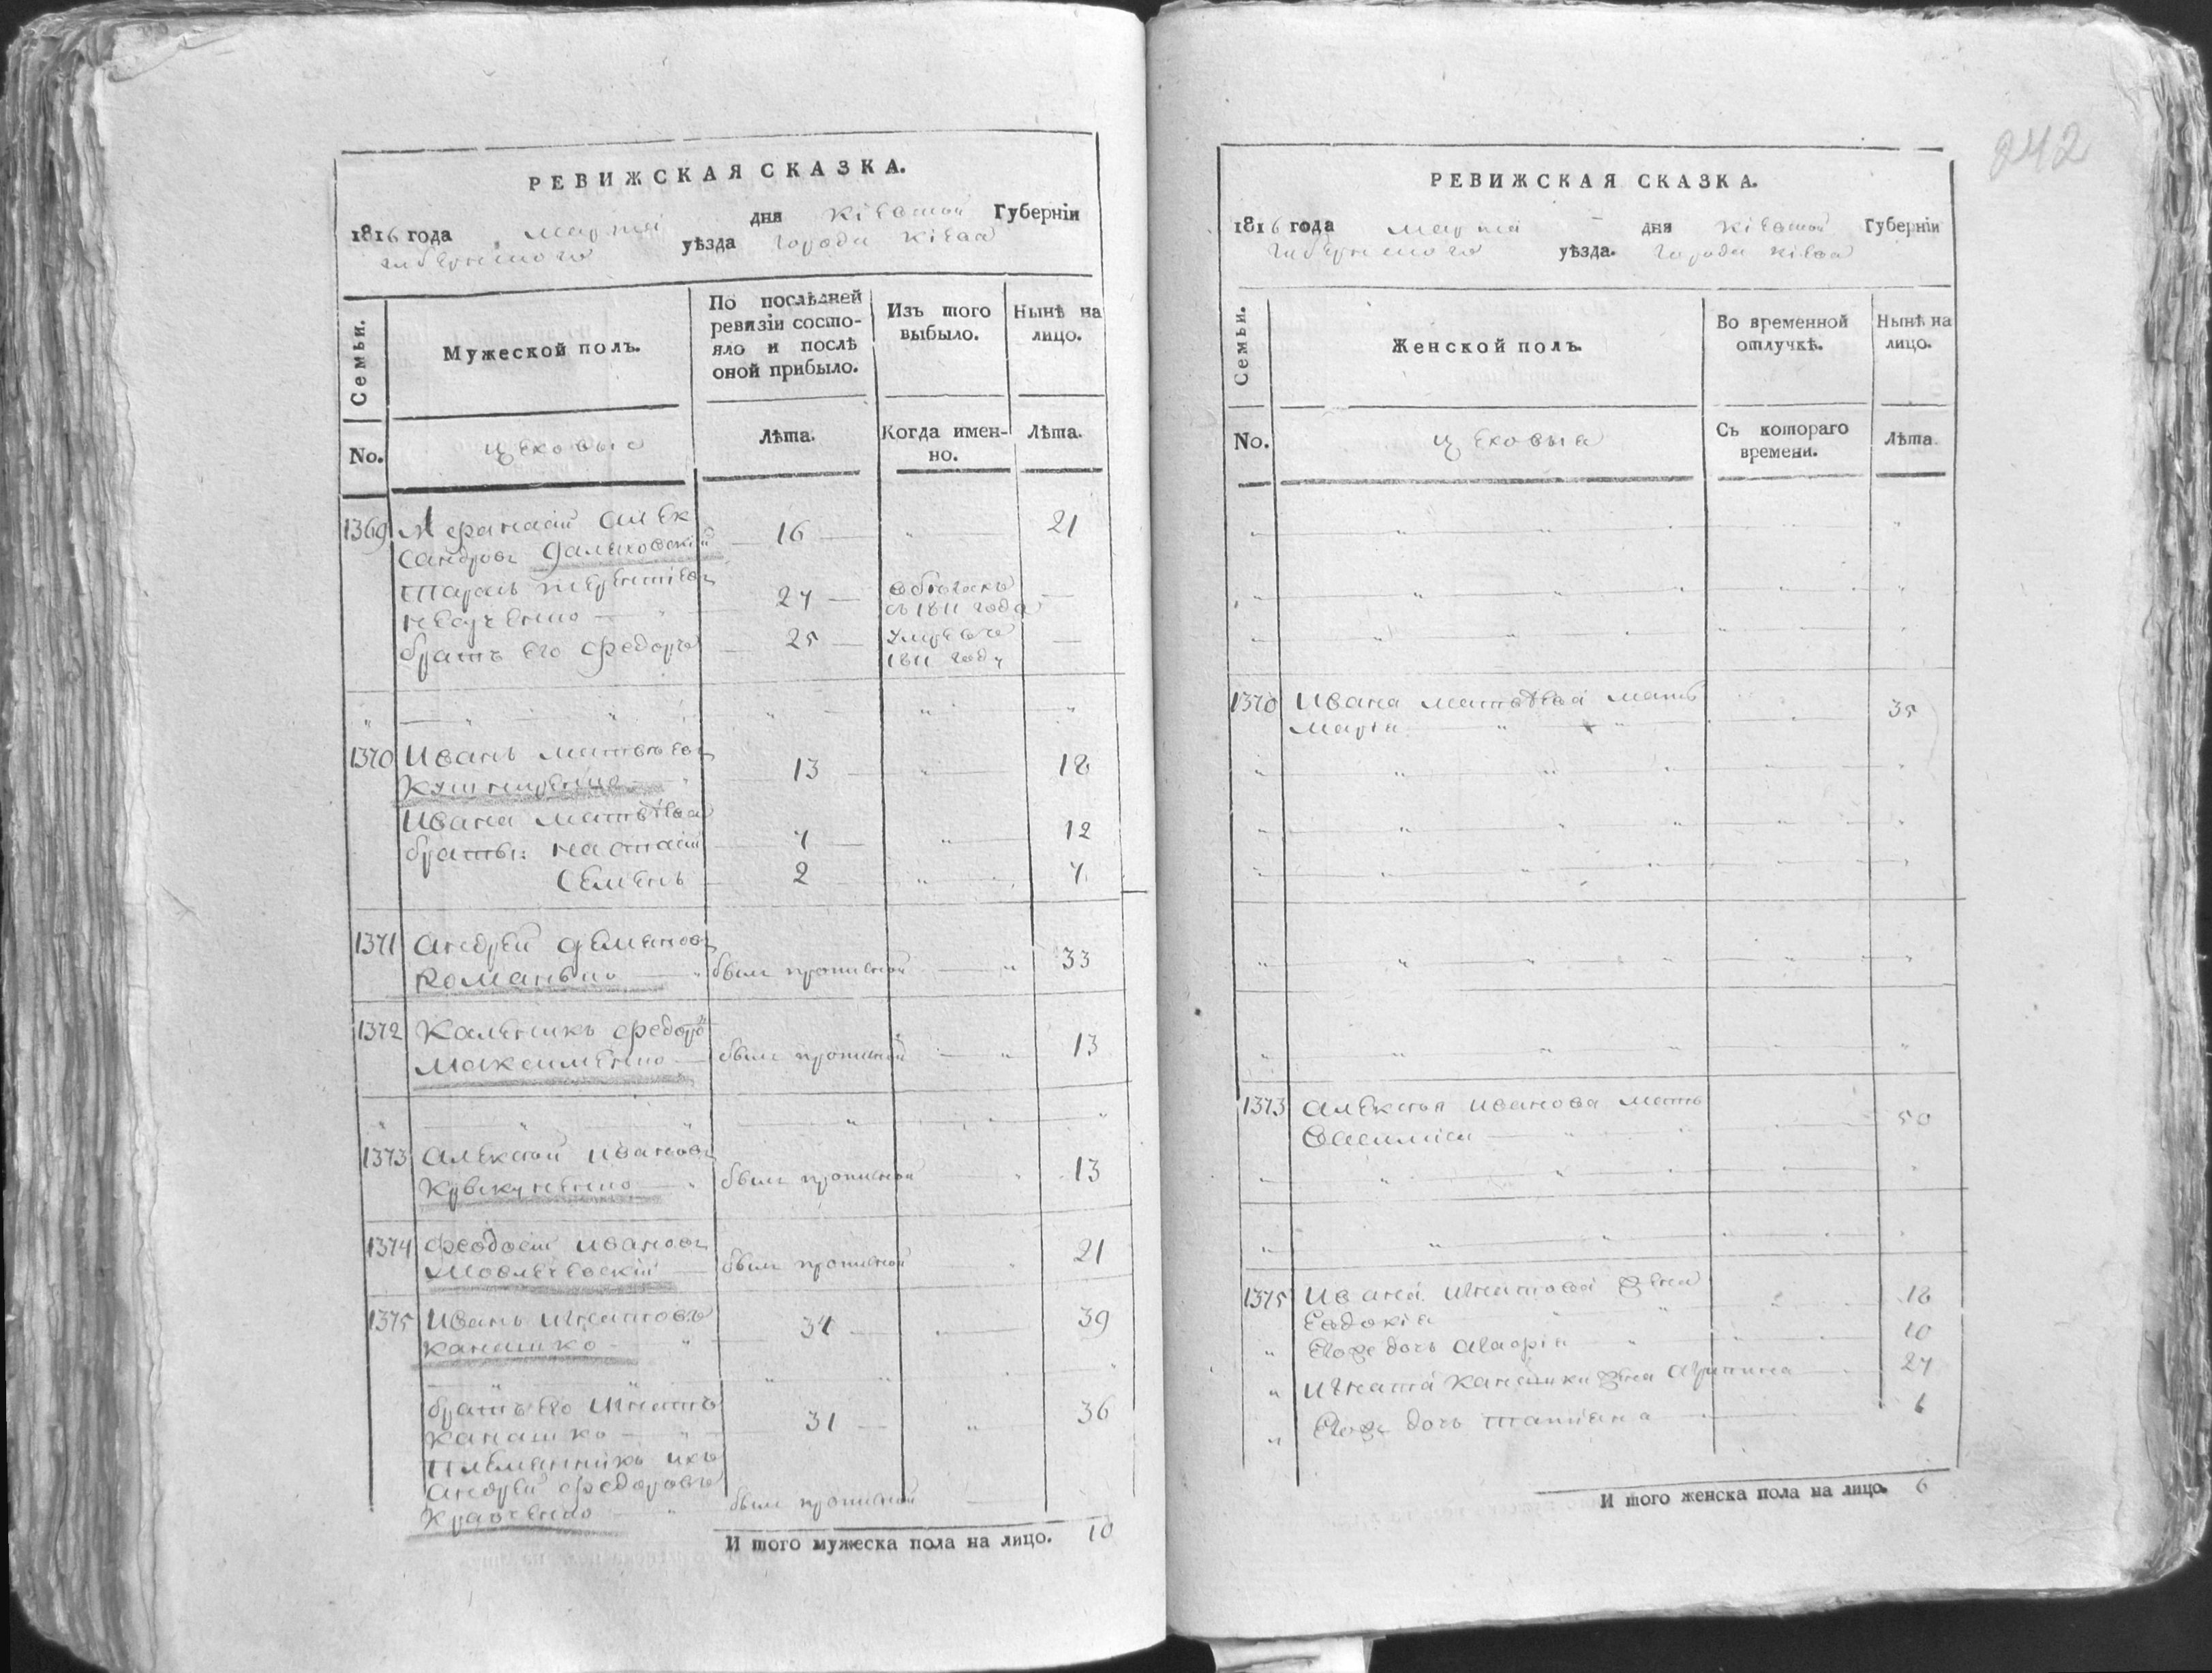 РЕВИЖСКАЯ СКАЗКА.
1816 года марта дня Кіевской Губерніи
Губернского уѣзда города Кіева
Семьи.
Мужеской полъ.
По послѣдней ревизіи состо-
яло и послѣ оной прибыло.
Изъ того выбыло.
Нынѣ на лицо.
No.
цеховые
Лѣта.
Когда имен-
но.
Лѣта.
1369 Афанасій Алек
сандровъ 16 21
Тарасъ Терентіевъ
27 съ 1811 года
братъ его Федоръ 25 умре въ
1811 году
1370 Иванъ Матвѣевъ
Кушниренко 13 18
Ивана Матвѣева
братья: 7 12
Семенъ 2 7
1371 Андрей Деменовъ
Романько былъ прописной 33
1372 Каленикъ Федоръ
Максименко былъ прописной 13
1373 Алексѣй Ивановъ
былъ прописной 13
1374 Феодосій Ивановъ
былъ прописной 21
1375 Иванъ Игнатовъ
Канашко 34 39
братъ его Игнатъ
Канашко 31 36
Племянникъ ихъ
Андрей Федоровъ
Кравченко былъ прописной
И того мужеска пола на лицо. 10
242
РЕВИЖСКАЯ СКАЗКА.
1816 года марта дня Кіевской Губерніи
Губернского уѣзда. города Кіева
Семьи.
Женской полъ.
Во временной
отлучкѣ.
Нынѣ на
лицо.
No.
цеховые
Съ котораго
времени.
Лѣта.
1370 Ивана Матвѣева мать
Марія 35
1373 Алексѣя Иванова мать
Василиса 50
1375 Ивана Игнатова жена
Евдокія 18
Егоже дочь 10
Игната Канашки жена Агрипина 27
Егоже дочь Татіана 6
И того женска пола на лицо. 6